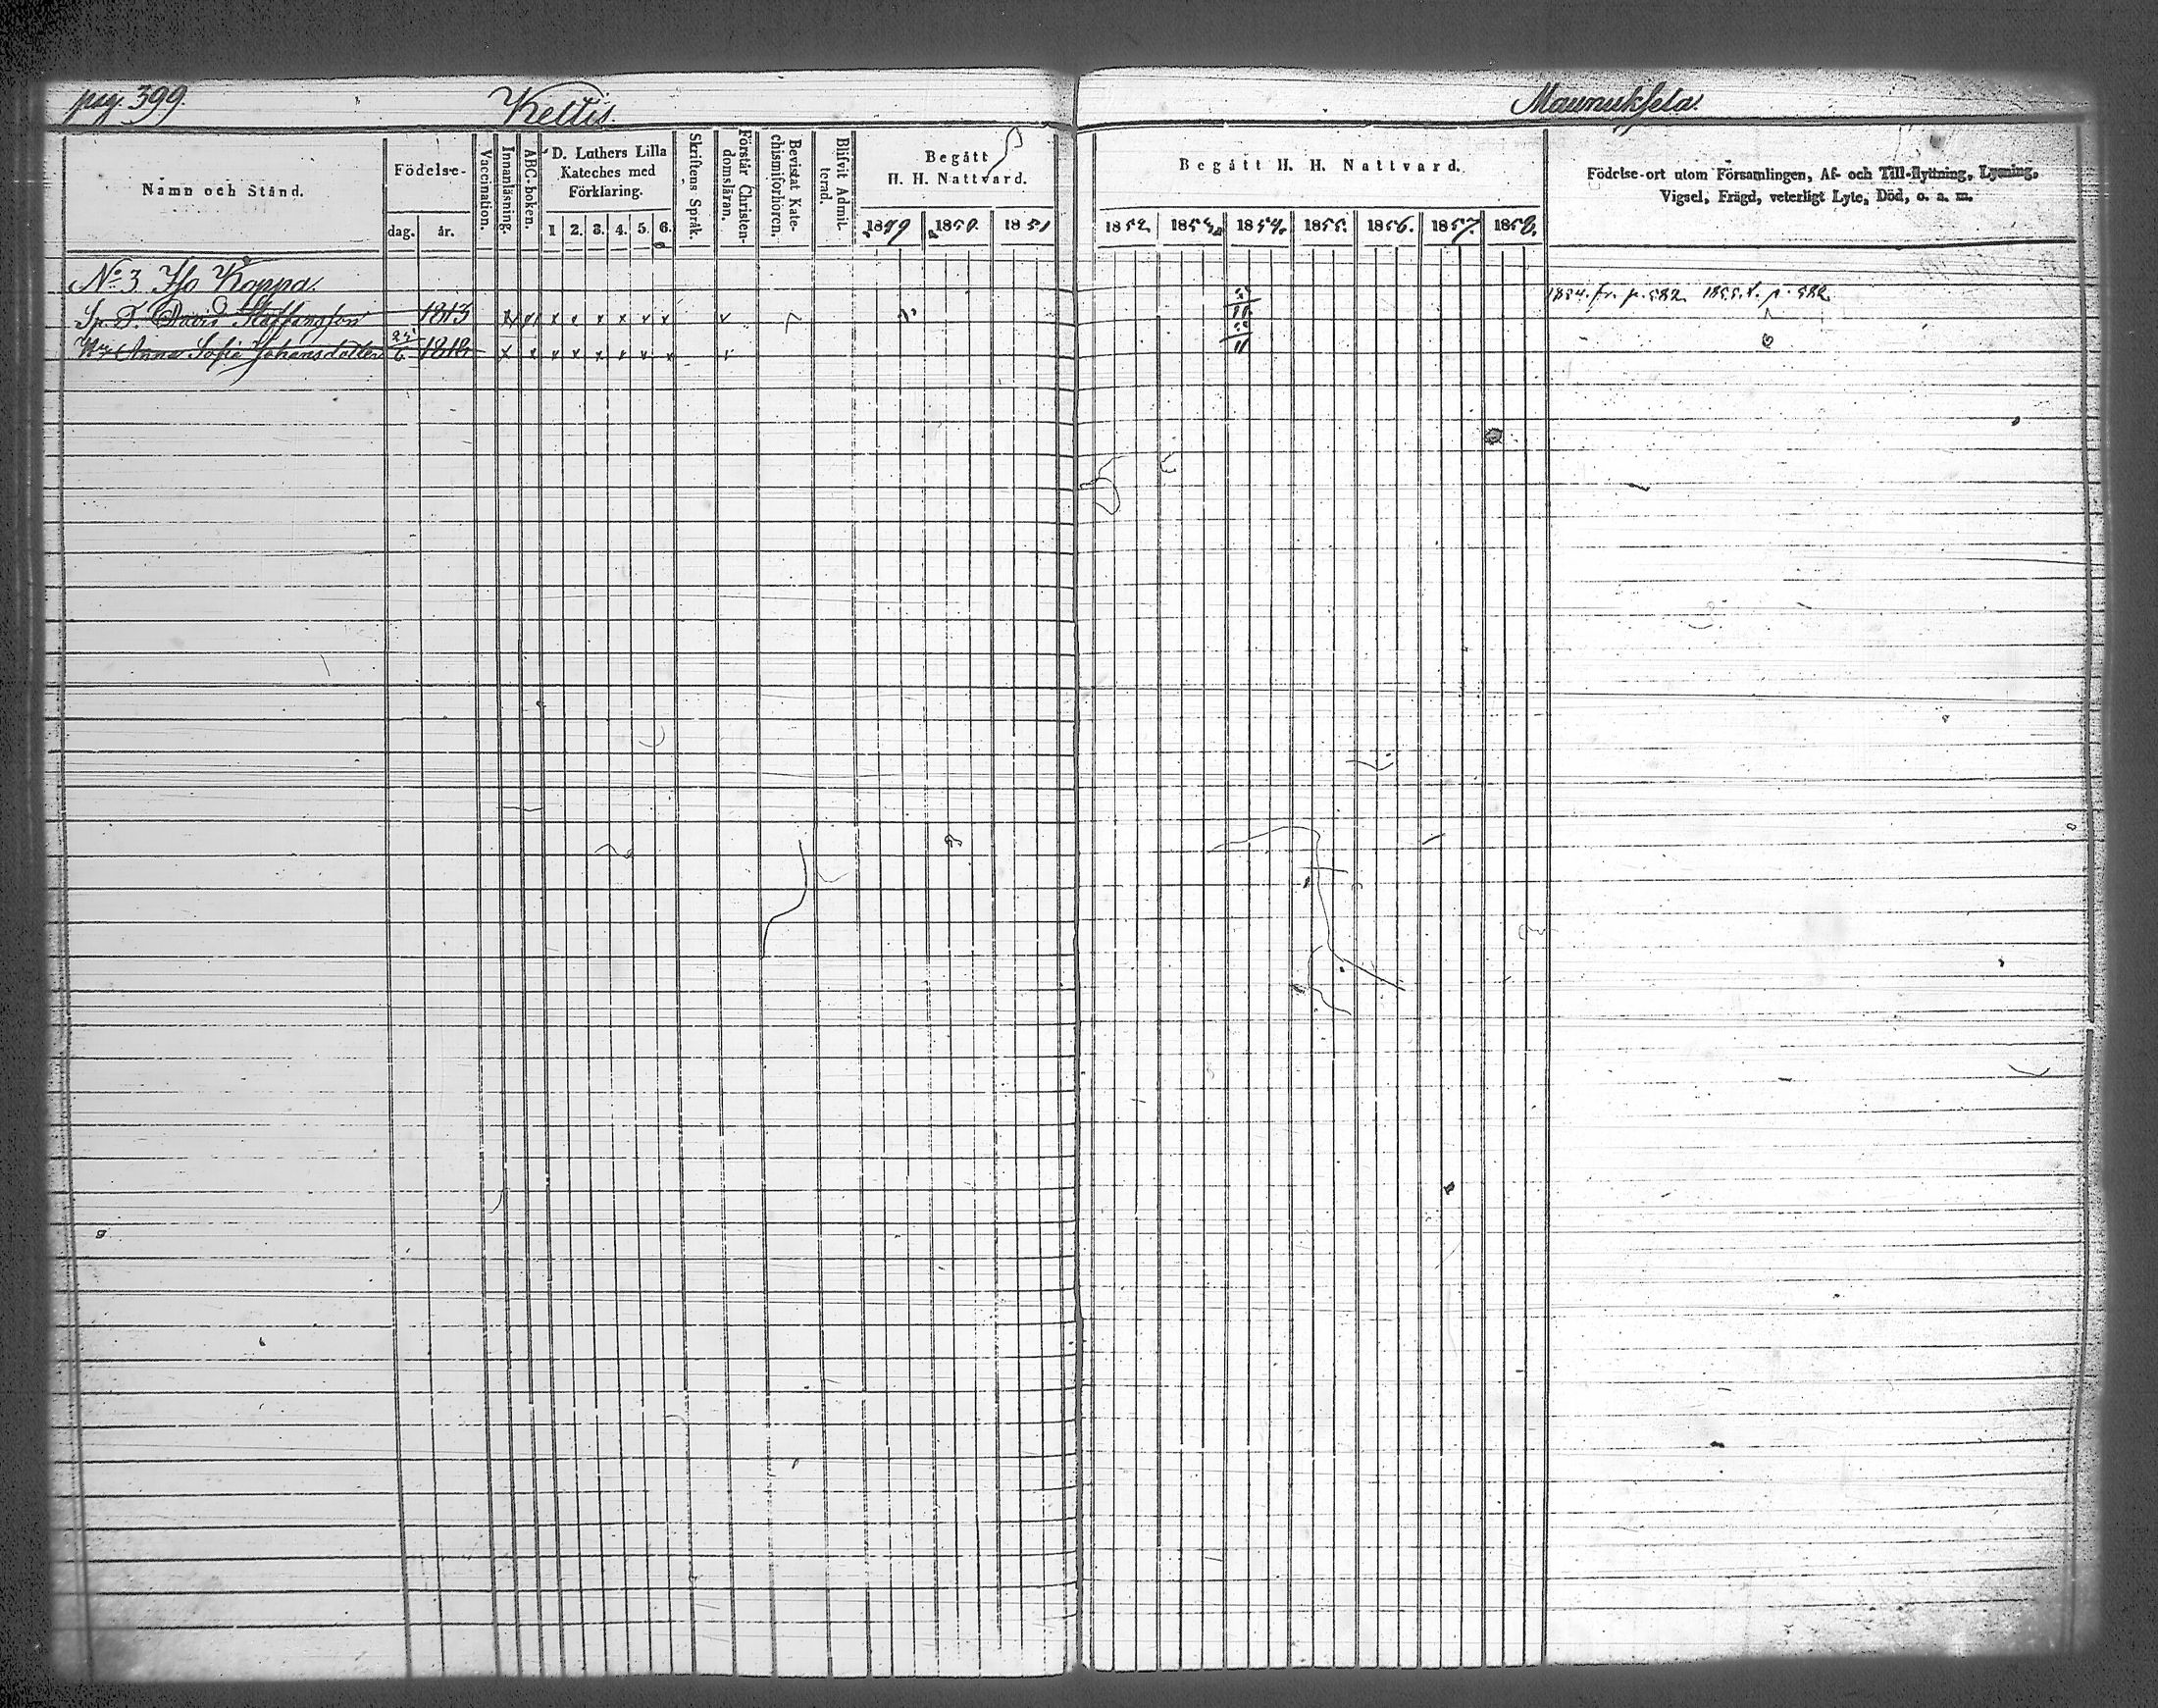 pag. 399.
Kettis.
Maunuksela.
Namn och Stånd.
Födelse-
dag.
år.
Vaccination.
Innanläsning.
ABC-boken.
D. Luthers Lilla
Kateches med
Förklaring.
1 2. 3. 4. 5. 6.
Skriftens Språk.
Förstår Christen-
domsläran.
Bevistat Kate-
chismiförhören.
Blifvit Admit-
terad.
Begått
H. H. Nattvard.
1849 1850. 1851
Begått H. H. Nattvard.
1852 1853 1854. 1855. 1856. 1857. 1858.
Födelse-ort utom Församlingen, Af- och Till-flyttning, Lysning,
Vigsel, Frägd, veterligt Lyte, Död, o. a. m.
No 3. Iso Koppa.
Sp. T. David Staffansson 1813 x x x x x x x 1854. fr. p. 582. 1855. t. p. 582.
Hu Anna Sofia Johansdotter 24/6 1818 x x x x x x x x